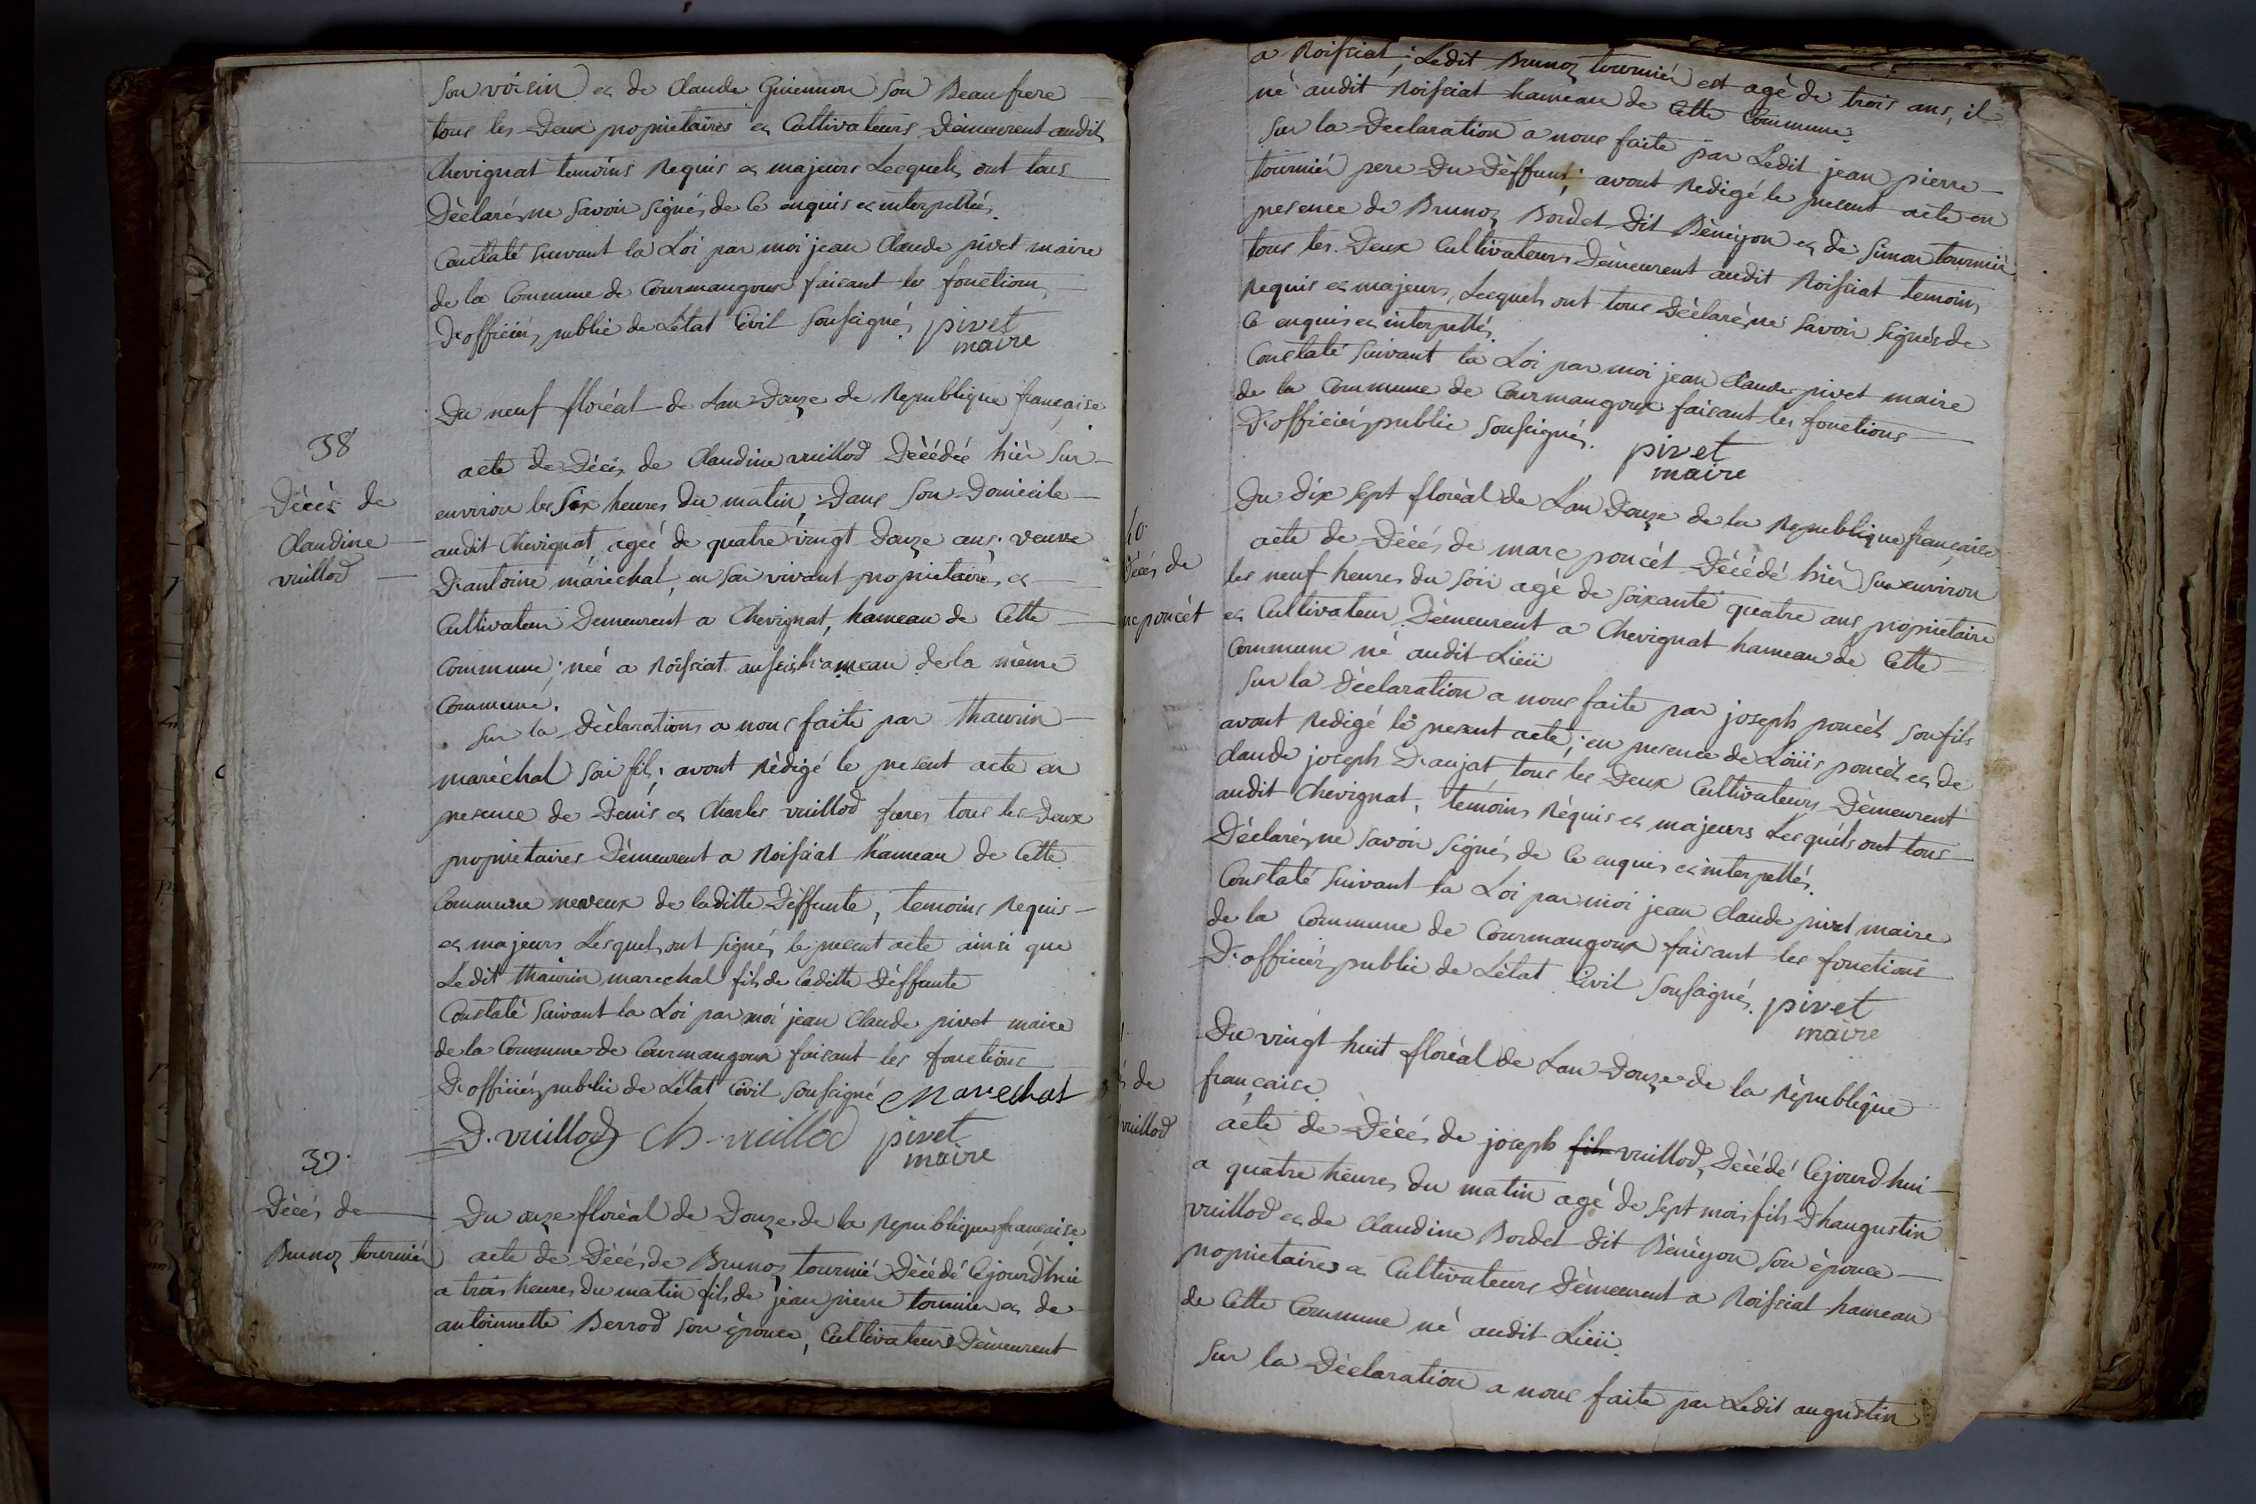 son voisin et de Claude Guiennon son Beaufrere
tous les Deux proprietaires et Cultivateurs Dèmeurent audit
Chevignat temoins Requis et majeurs Lesquels ont tous
Dèclarés ne savoir signés de ce enquis et interpellés.
Constaté suivant la Loi par moi jean Claude pivet maire
de la Commune de Courmangoux faisant les fonctions
D'officiér public de L'ètat Civil soussignés pivet
maire
Du neuf floréal de Lan Douze de Republique française
38
Dècès de
Claudine
vuillod
acte de Dècés de Claudine vuillod Dècédée hièr sur
environ les six heures du matin, Dans son Domicile
audit Chevignat, ageé de quatre vingt Douze ans. veuve
D'antoine maréchal, en son vivant proprietaires et
Cultivateur Demeurent a Chevignat, hameau de Cette
Commune; neé a Roissiat aussis hameau de la mème
Commune.
sur la Dèclarations a nous faite par thaurin
maréchal son fils; avont Rèdigé le present acte en
presence de Denis et Charles vuillod freres tous les Deux
proprietaires Dèmeurent a Roissiat hameau de Cette
Commune neveux de laditte Dèffunte, temoins Requis
et majeurs Lesquels ont signés le present acte ainsi que
Ledit thaurin marechal fils de laditte Dèffunte
Constaté suivant la Loi par moi jean Claude pivet maire
de la Commune de Courmangoux faisant les fonctions
D'officiér public de L'ètat Civil soussigné Marechal
D. vuillod Ch. vuillod pivet
maire
39.
Dècés de
Brunoz tourniér
Du onze floréal de Douze de la Republique française
acte de Dècés de Brunoz tourniè Dècédé Cejourd'hui
a trois heures du matin fils de jean pierre tournier et de
antoinnette Berrod son èpouce, Cultivateurs Dèmeurent
a Roissiat; Ledit Brunoz tourniér est agé de trois ans, il
né audit Roissiat hameau de Cette Commune.
sur la Declaration a nous faite par Ledit jean pierre
tourniér pere Du Dèffunt; avont Redigé le present acte en
presence de Brunoz Bordet dit Bènéyon et de simon tourniér
tous les Deux Cultivateurs Dèmeurent audit Roissiat temoins
Requis et majeurs, Lesquels ont tous Dèclarés ne savoir signés de
ce enquis et interpellés
Constaté suivant la Loi par moi jean Claude pivet maire
de la Commune de Courmangoux faisant les fonctions
D'officiér public soussignés. pivet
maire
Du dix sept floréal de L'an Douze de la Republique française
40
Dècés de
poncét
acte de Dècés de marc poncét Dècédé hièr sur environ
les neuf heures du soir agé de soixante quatre ans proprietaire
et Cultivateur Dèmeurent a Chevignat hameau de Cette
Commune né audit Lieu
sur la Dèclaration a nous faite par joseph poncét son fils
avont Redigé le present acte; en presence de Louis poncét et de
Claude joseph D'aujat tous les Deux Cultivateurs Dèmeurent
audit Chevignat, temoins Rèquis et majeurs Lesquéls ont tous
Dèclarés ne savoir signés de ce enquis et interpellés.
Constaté suivant la Loi par moi jean Claude pivet maire
de la Commune de Courmangoux faisant les fonctions
D'officiér public de L'ètat Civil soussignés. pivet
maire
Du vingt huit floréal de Lan Douze de la Rèpublique
française
de
vuillod
acte de Dècés de joseph fils vuillod, Dècédé Cejourd'hui
a quatre heures du matin agé de sept mois fils D'haugustin
vuillod et de Claudine Bordet dit Bènéyon son èpouce
proprietaires et Cultivateurs Dèmeurent a Roissiat hameau
de Cette Commune né audit Lieu.
sur la Dèclaration a nous faite par Ledit augustin